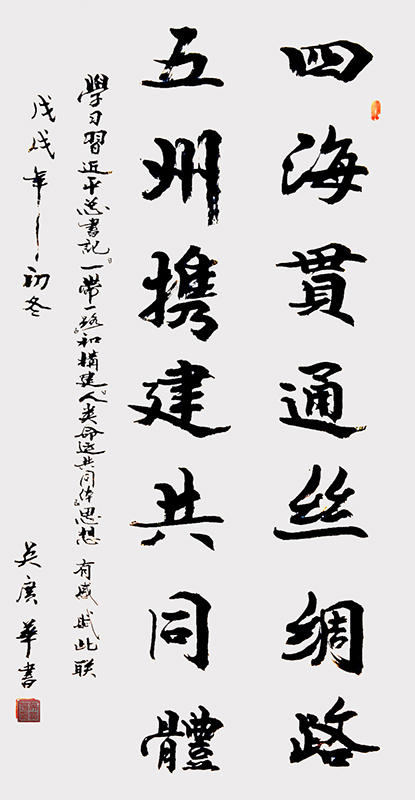 四海貫通丝绸路
五州携建共同體
學习習近平总書記《一带一路》和構建《人类命运共同体》思想 有感 賦此联
戊戌年初冬
吴廣華書